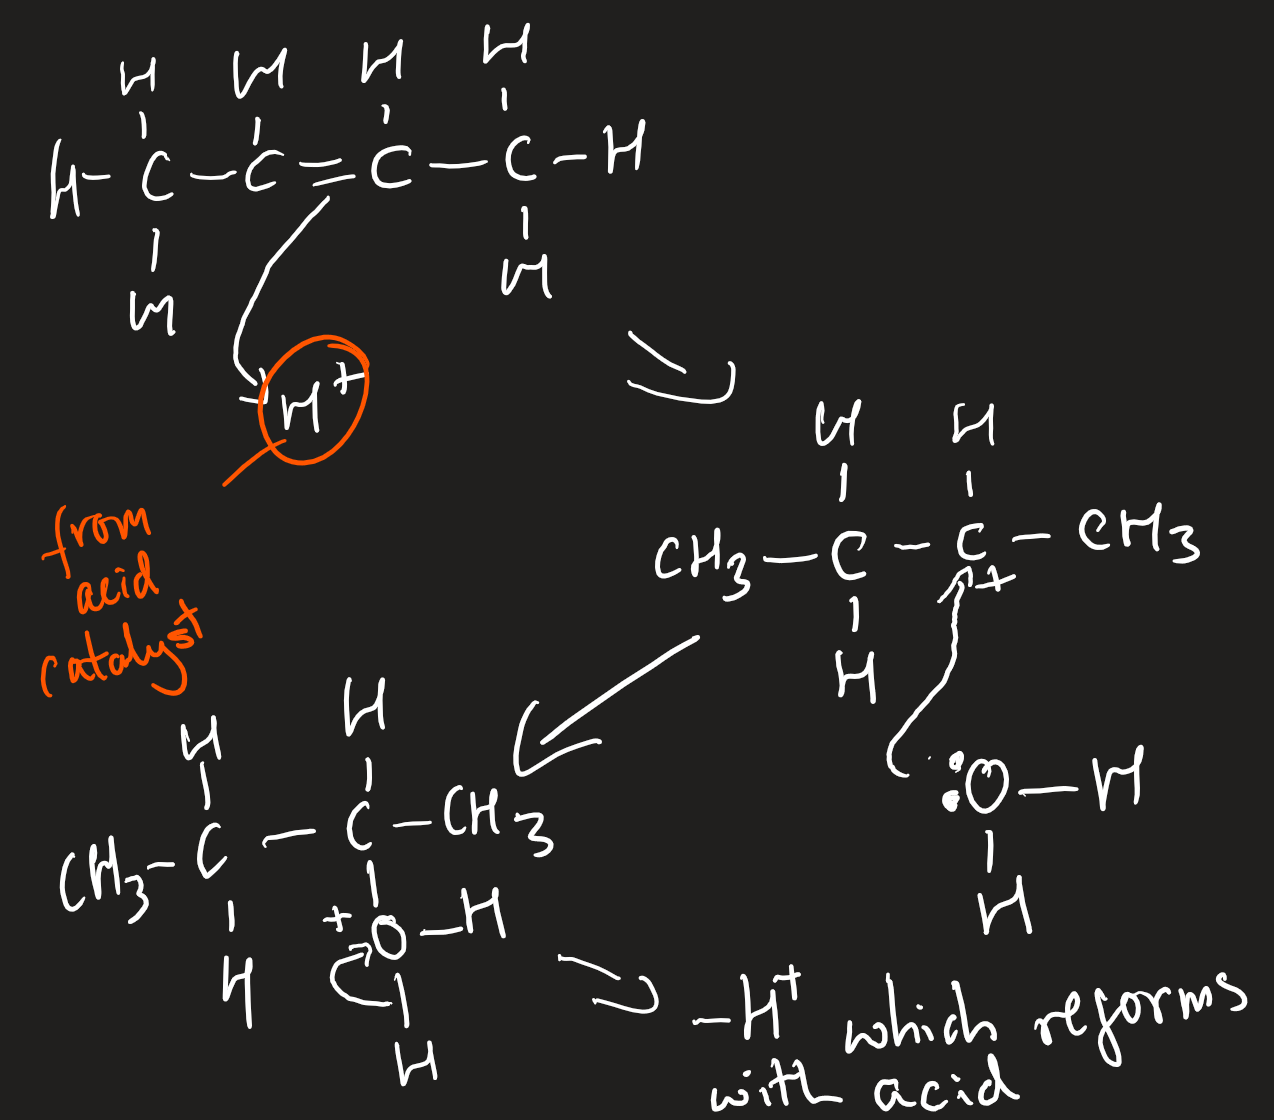 H H H H
H - C - C = C - C - H
H H
H⁺
from
acid
catalyst
H H
CH₃ - C - C - CH₃
+
H
:O - H
H
H H
CH₃ - C - C - CH₃
+ O - H
H
H
-H⁺ which reforms
with acid